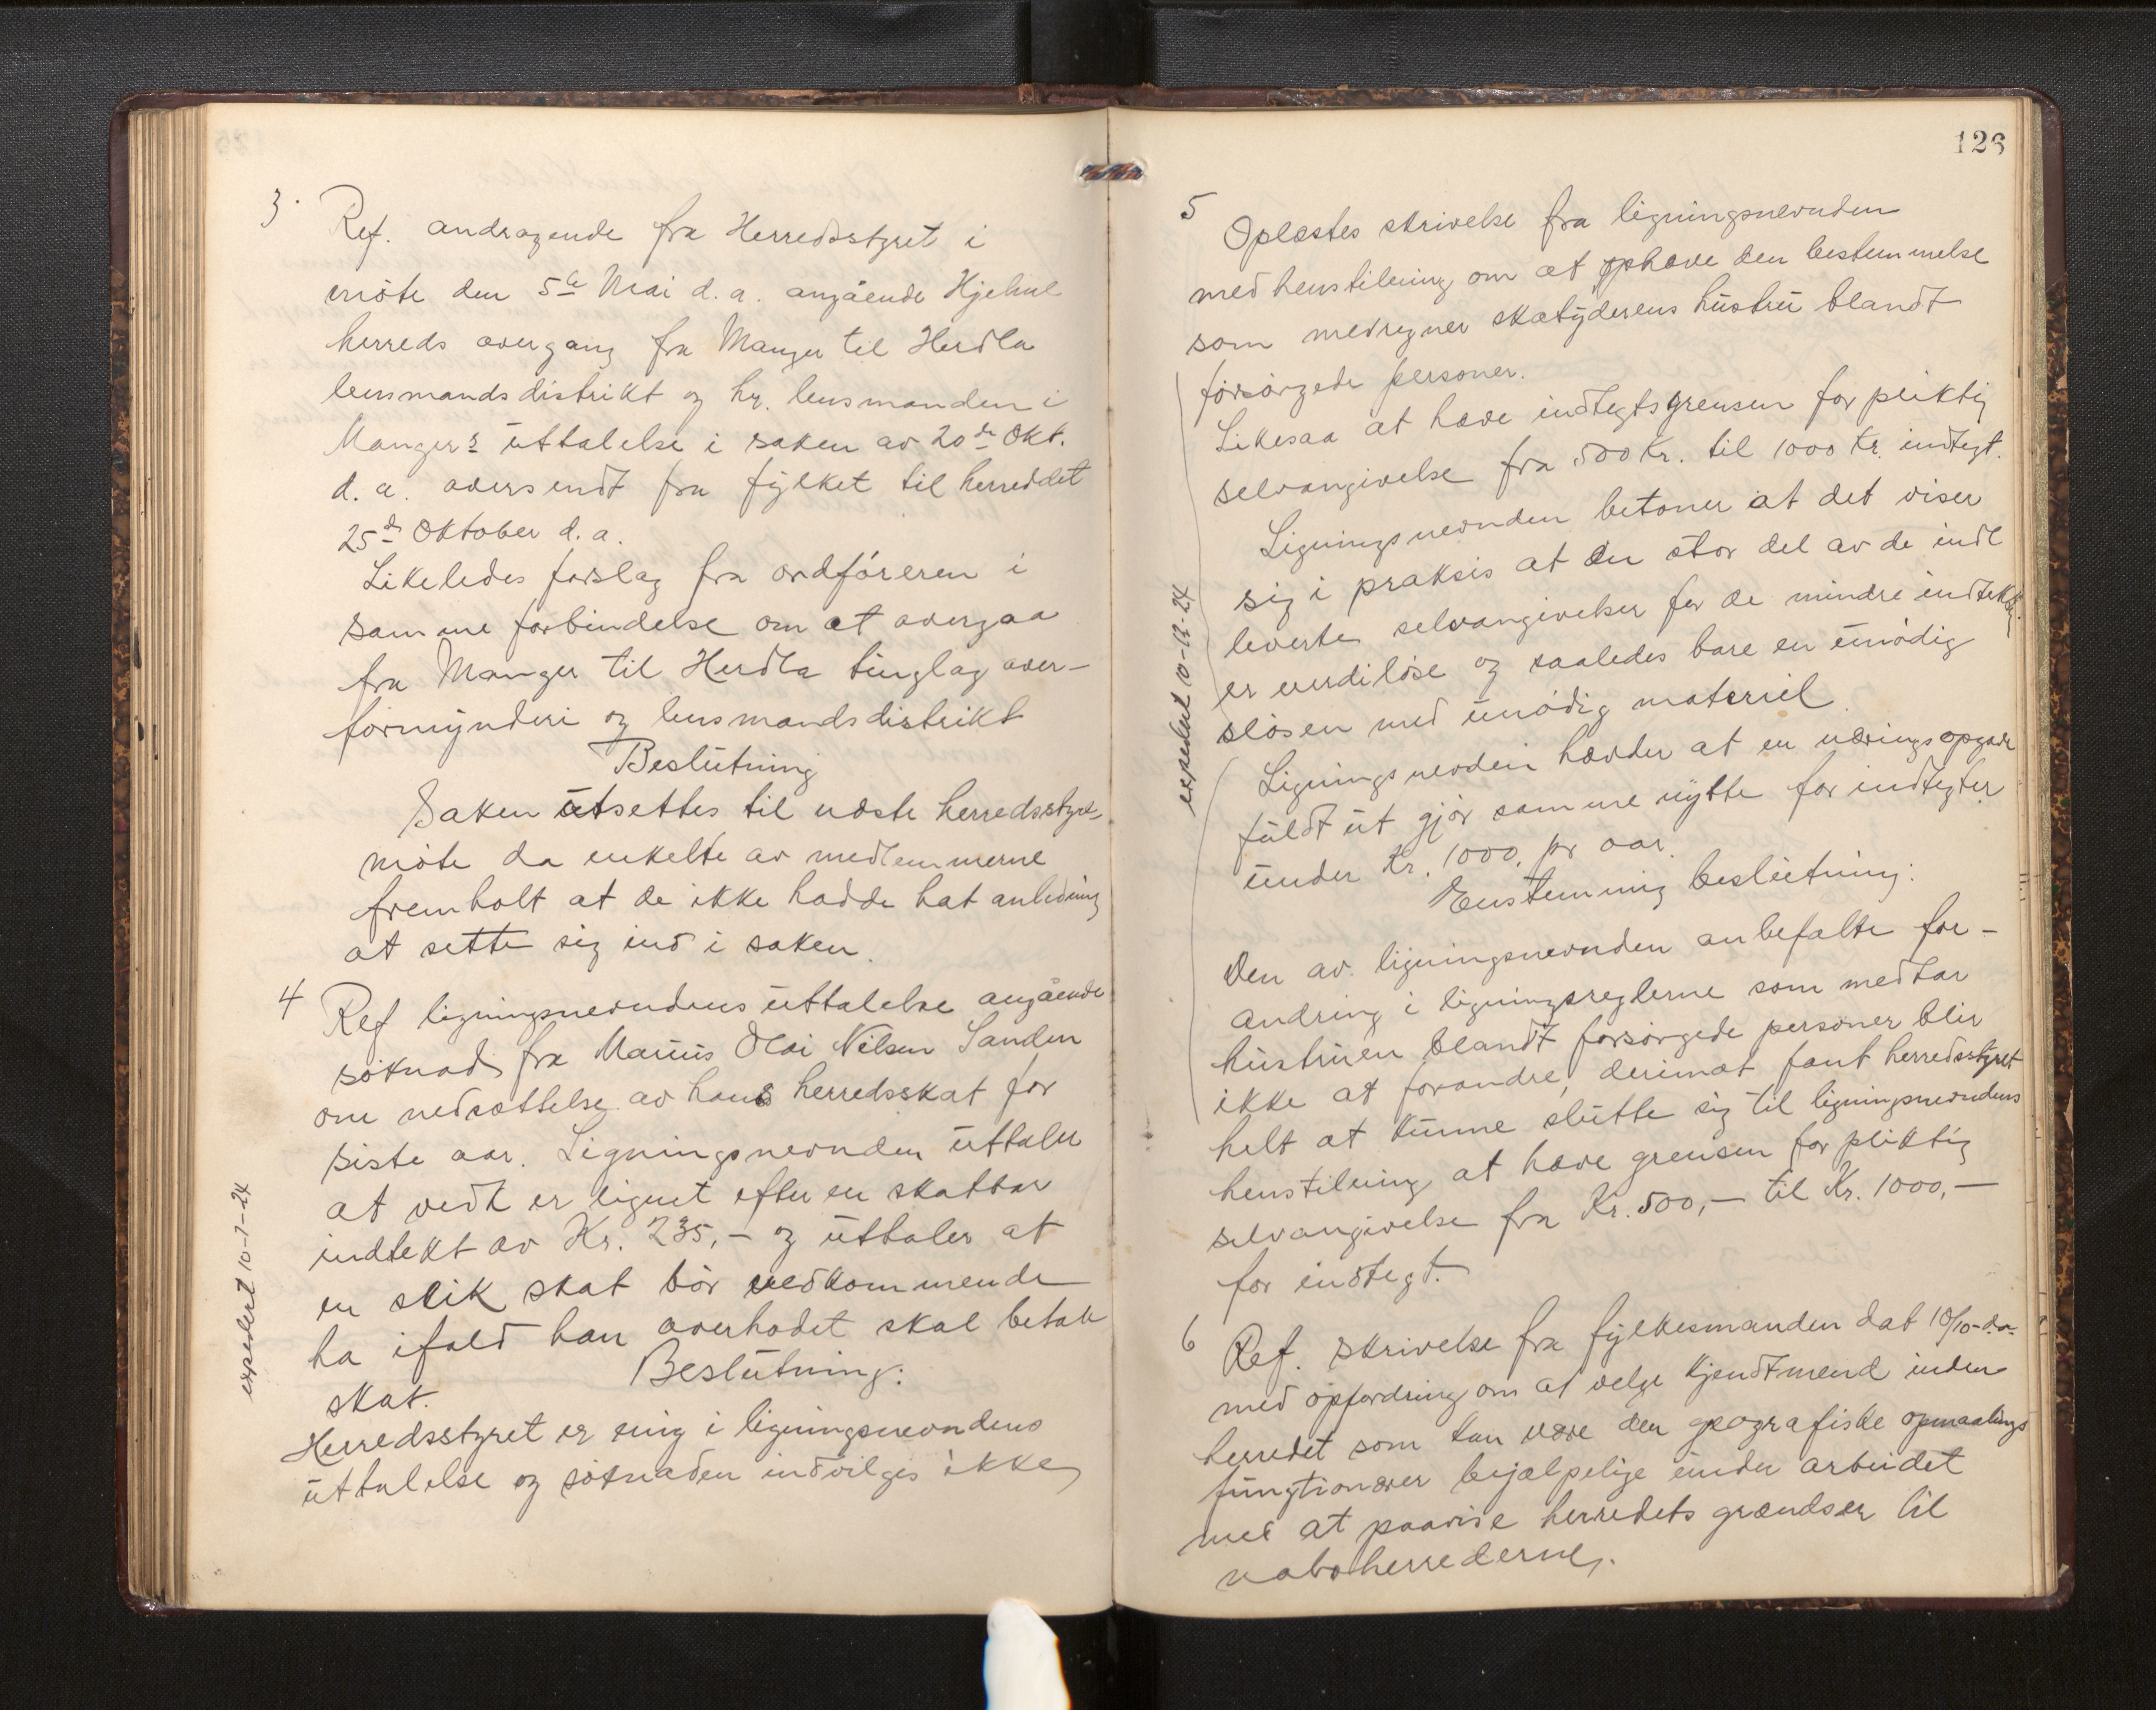 3.
Ref. andragende fra Herredsstyret i
møte den 5te Mai d.a. angående Hjelme
herreds overgang fra Manger til Herdla
lensmandsdistrikt og hr. lensmanden i
Mangers uttalelse i saken av 20de Okt.
d.a. oversendt fra fylket til herreddet
25d Oktober d.a.
Likeledes forslag fra ordføreren i
samme forbindelse om at overgaa
fra Manger til Herdla tinglag over-
formynderi og lensmandsdistrikt
Beslutning
Saken utsettes til næste herredsstyre-
møte da enkelte av medlemmerne
fremholt at de ikke hadde hat anledning
at sette sig ind i saken.
4
Ref ligningsnevndens uttalelse angående
søknad fra Marius Olai Nilsen Sanden
om nedsættelse av hans herredsskat for
siste aar. Ligningsnevnden uttaler
at vedk er lignet efter en skatbar
indtekt av Kr. 235,- og uttaler at
en slik skat bør vedkommende
ha ifald han overhodet skal betale
skat.
Beslutning:
Herredsstyret er enig i ligningsnevndens
uttalelse og søknaden indvilges ikke
expedert 10-1-24
126
5
Oplæstes skrivelse fra ligningsnevnden
med henstilening om at ophæve den bestemmelse
som medregner skatyderens hustru blandt
forsørgede personer.
Likesaa at hæve indtegtsgrensen for pliktig
selvangivelse fra 500 Kr. til 1000 Kr. indtegt.
Ligningsnevnden betoner at det viser
sig i praksis at en stor del av de indl
leverte selvangivelser for de mindre indtekter
er verdiløse og saaledes bare en unødig
sløsen med unødig materiel
Ligningsnevden hævder at en næringsopgave
fuldt ut gjør samme nytte for indtegter
under Kr. 1000. pr aar.
Enstemmig beslutning:
Den av ligningsnevnden anbefalte for-
andring i ligningsreglerne som medtar
hustruen blandt forsørgede personer blir
ikke at forandre, derimot fant herredsstyret
helt at kunne slutte sig til ligningsnevndens
henstilening at hæve grensen for pliktig
selvangivelse fra Kr. 500,- til Kr. 1000,-
for indtegt.
expedert 10-12-24
6
Ref. skrivelse fra fylkesmanden dat 10/10-d.a.
med opfordring om at velge kjendtmend inden
herredet som kan være den geografiske opmaalings
fungtionærer behjælpelige under arbeidet
med at paavise herredets grændser til
naboherrederne.